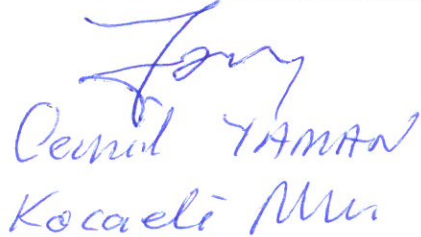 Cemil YAMAN
Kocaeli Mv.